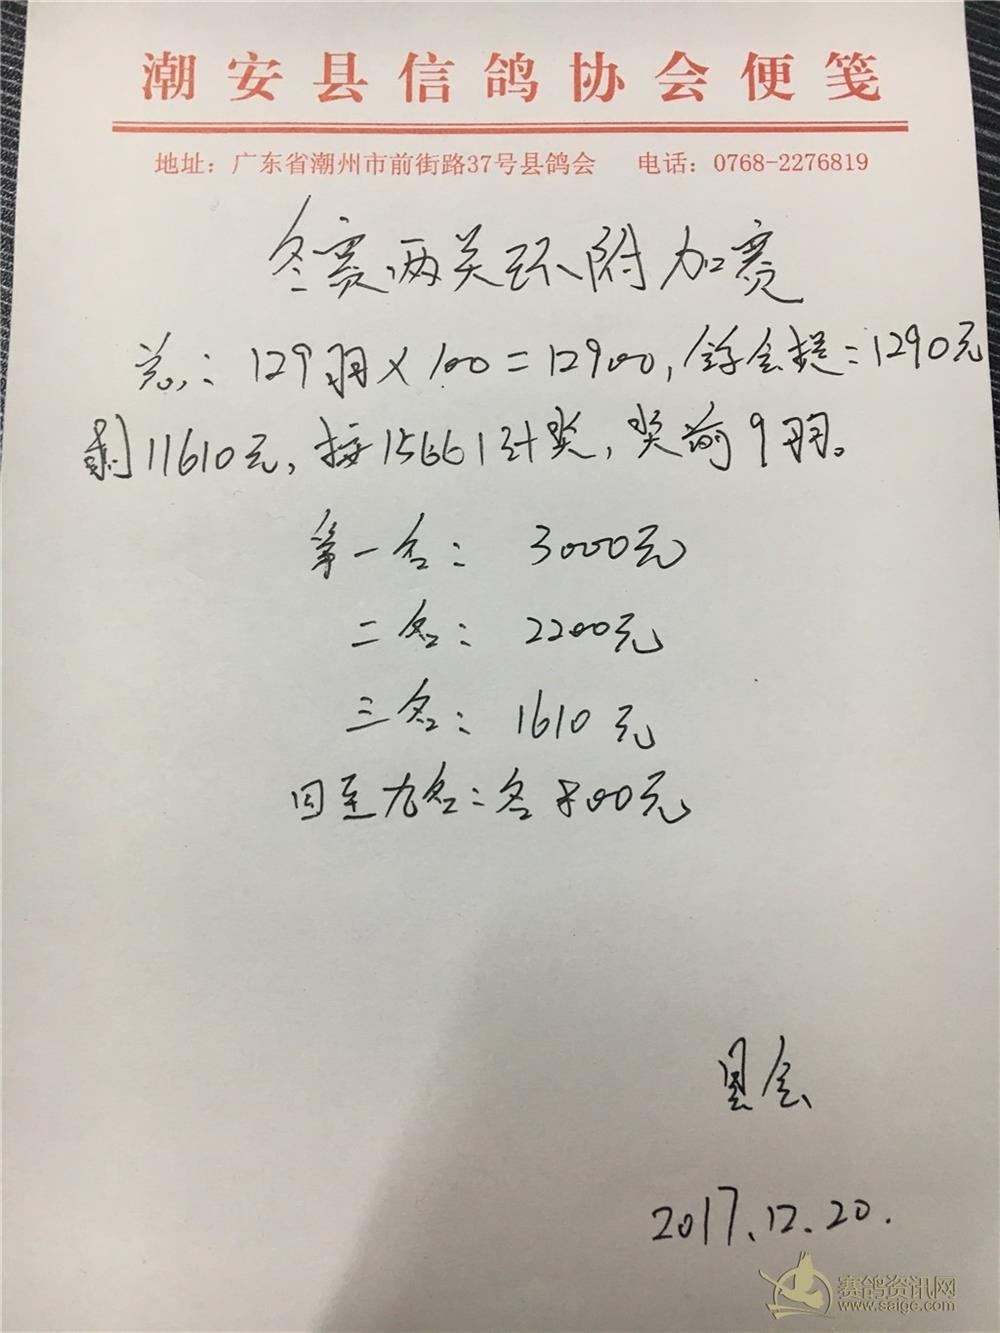 潮安县信鸽协会便笺
地址：广东省潮州市前街路37号县鸽会 电话：0768-2276819
冬赛两关环附加赛
总：129羽×100=12900，会提：1290元
剩11610元，按15661计奖，奖前9羽。
第一名：3000元
二名：2200元
三名：1610元
四至九名：各800元
县会
2017.12.20.
赛鸽资讯网
www.saigc.com